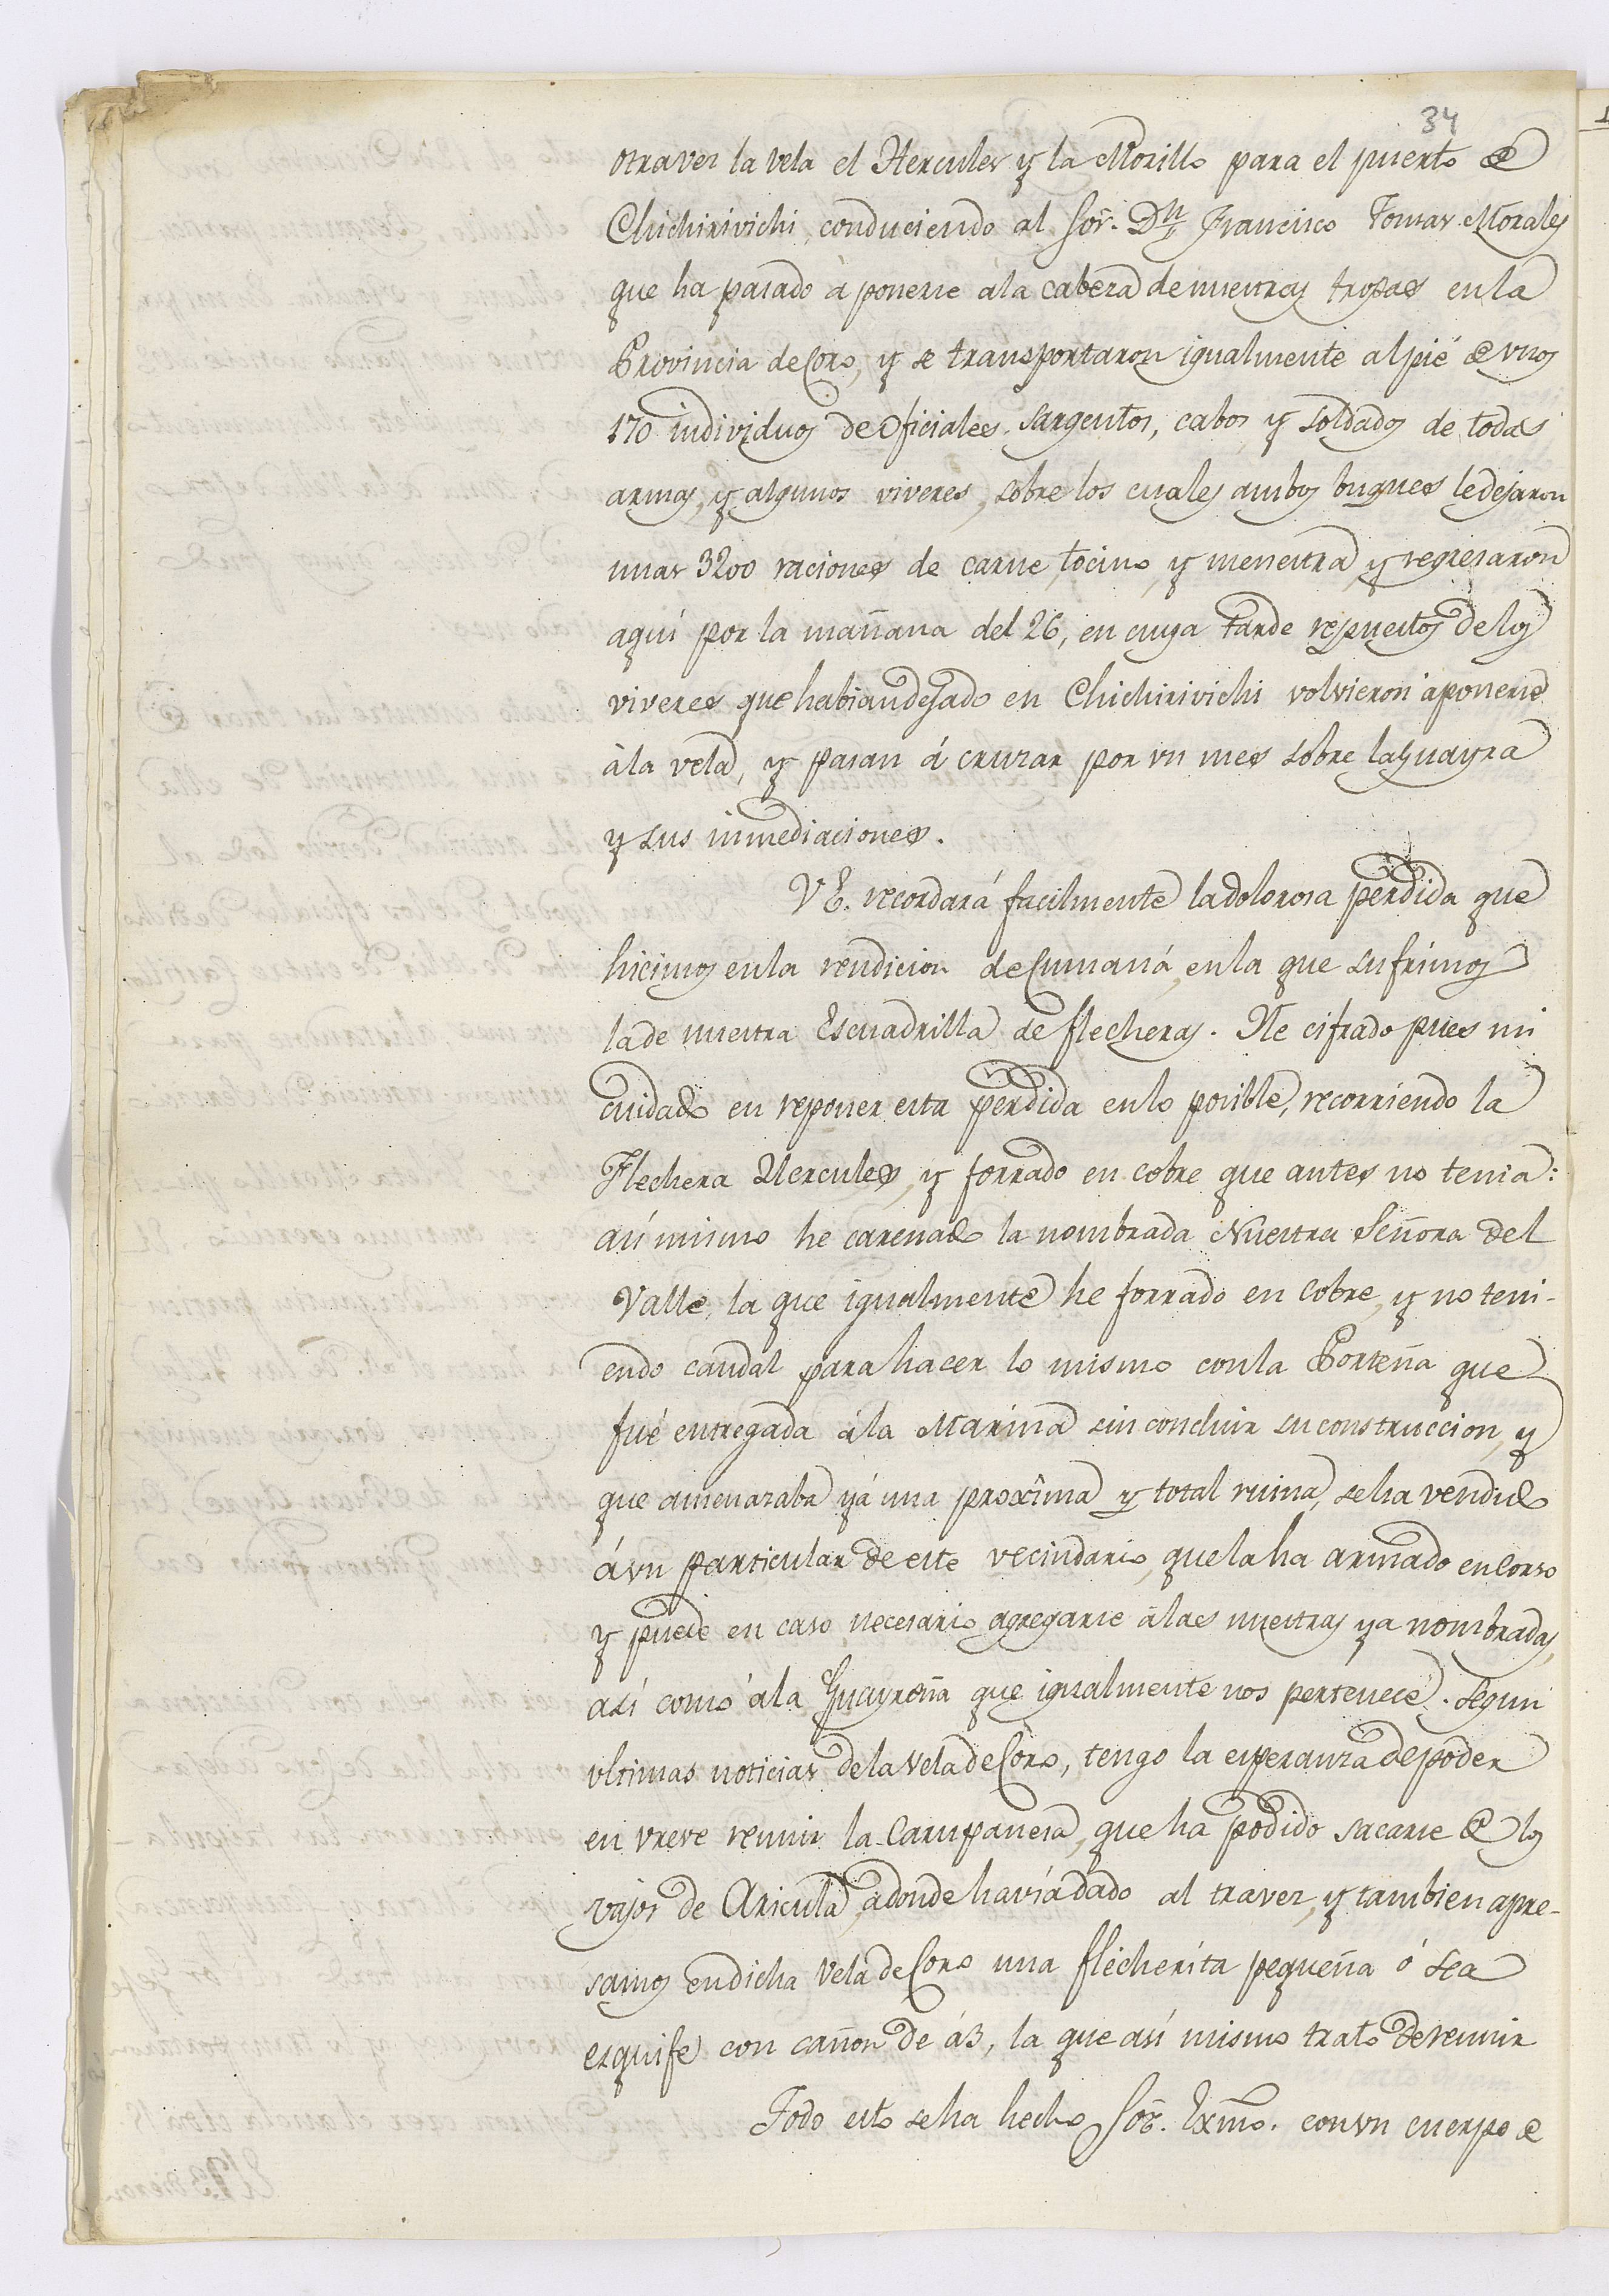 34
otra vez la vela el Hercules y la Morillo para el puerto de
Chichirivichi, conduciendo al Sor. Dn. Francisco Tomas Morales
que ha pasado à ponerse à la cabeza de nuestras tropas en la
Provincia de Coro, y se transportaron igualmente al pié de vnos
170 individuos de Oficiales, Sargentos, cabos y soldados de todas
armas, y algunos viveres, sobre los cuales ambos buques le dejaron
unas 3200 raciones de carne, tocino, y menestra, y regresaron
aquí por la mañana del 26, en cuya tarde repuestos de los
viveres que habian dejado en Chichirivichi volvieron à ponerse
à la vela, y pasan á cruzar por vn mes sobre la Guayra
y sus inmediaciones.
VE. recordará facilmente la dolorosa pérdida que
hicimos en la rendicion de Cumaná, en la que sufrimos
la de nuestra Escuadrilla de flecheras. He cifrado pues mi
cuidado en reponer esta perdida en lo posible, recorriendo la
Flechera Hercules, y forrado en cobre que antes no tenia:
así mismo he carenado la nombrada Nuestra Señora del
Valle, la que igualmente he forrado en cobre, y no teni-
endo caudal para hacer lo mismo con la Porteña que
fué entregada à la Marina sin concluir su construccion, y
que amenazaba yá una proxîma y total ruina, se ha vendido
á vn particular de este vecindario, que la ha armado en Corso
y puede en caso necesario agregarse à las nuestras ya nombradas,
así como à la Guayreña que igualmente nos pertenece. Segun
vltimas noticias de la Vela de Coro, tengo la esperanza de poder
en vreve reunir la Carupanera, que ha podido sacarse de los
vajos de Aricula, adonde havía dado al travez, y tambien apre-
samos en dicha Vela de Coro una flecherita pequeña ó sea
esquife con cañon de á 3, la que así mismo trato de reunir
Todo esto se ha hecho Sor. Exmo. con vn cuerpo de